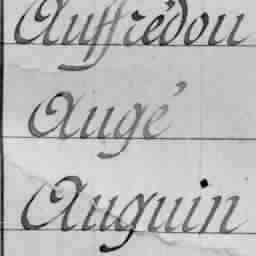 Auffrédou
Augé
Auguin